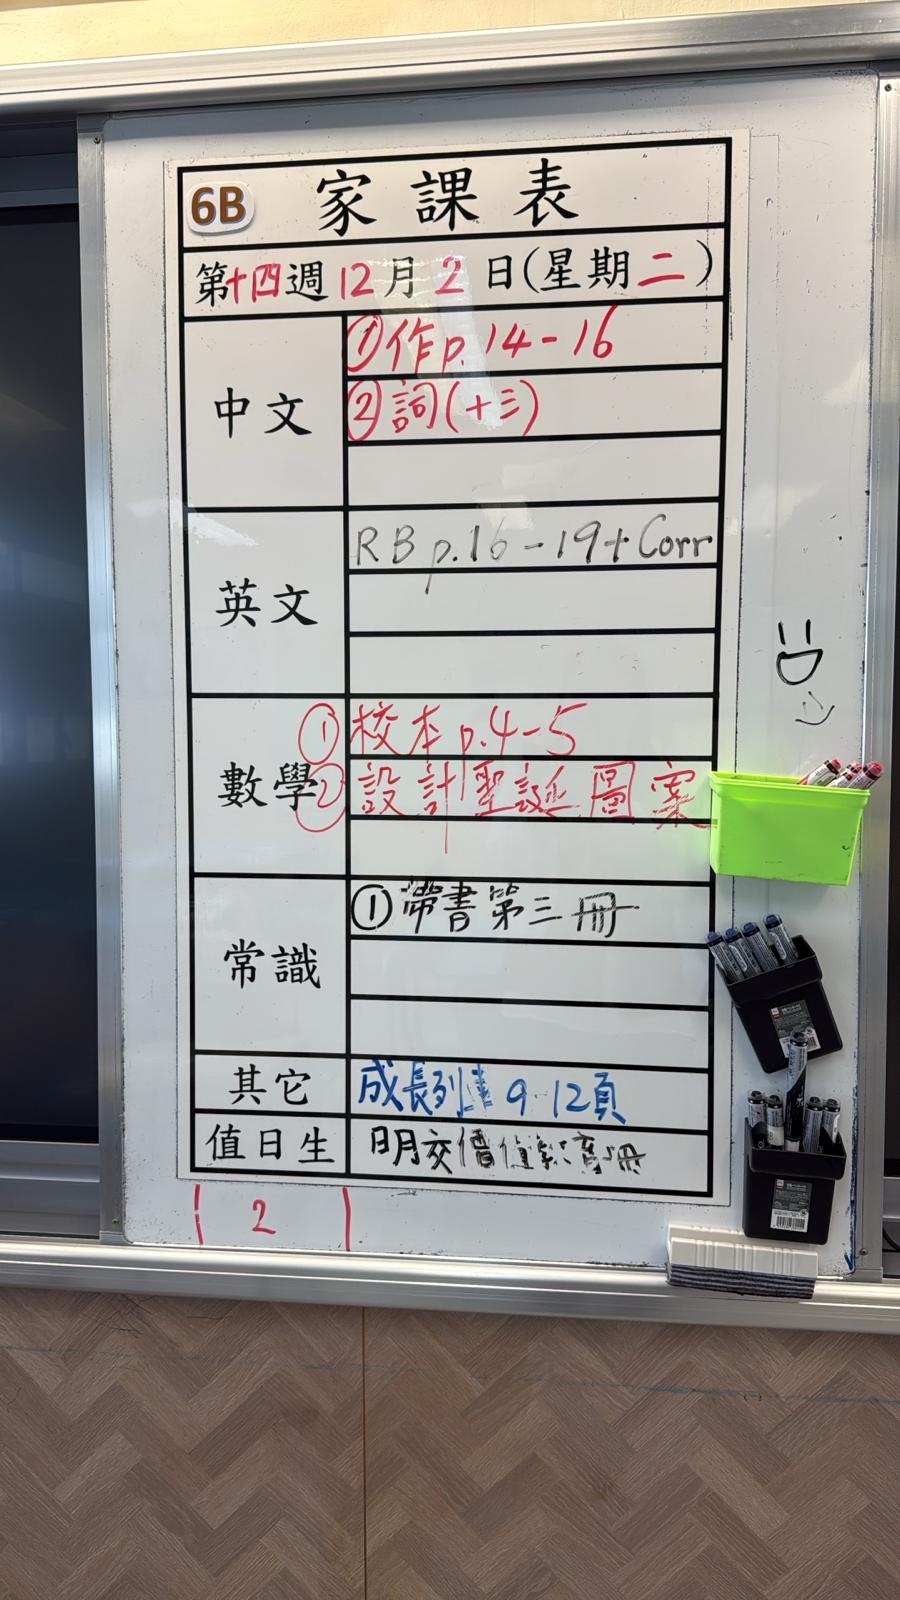 6B 家課表
第十四週12月2日(星期二)
中文
①作p.14-16
②詞(十三)
英文
RB p.16-19+Corr
數學
①校本p.4-5
②設計聖誕圖案
常識
①帶書第三冊
其它
成長列車 9-12頁
值日生
明交價值教育冊
2